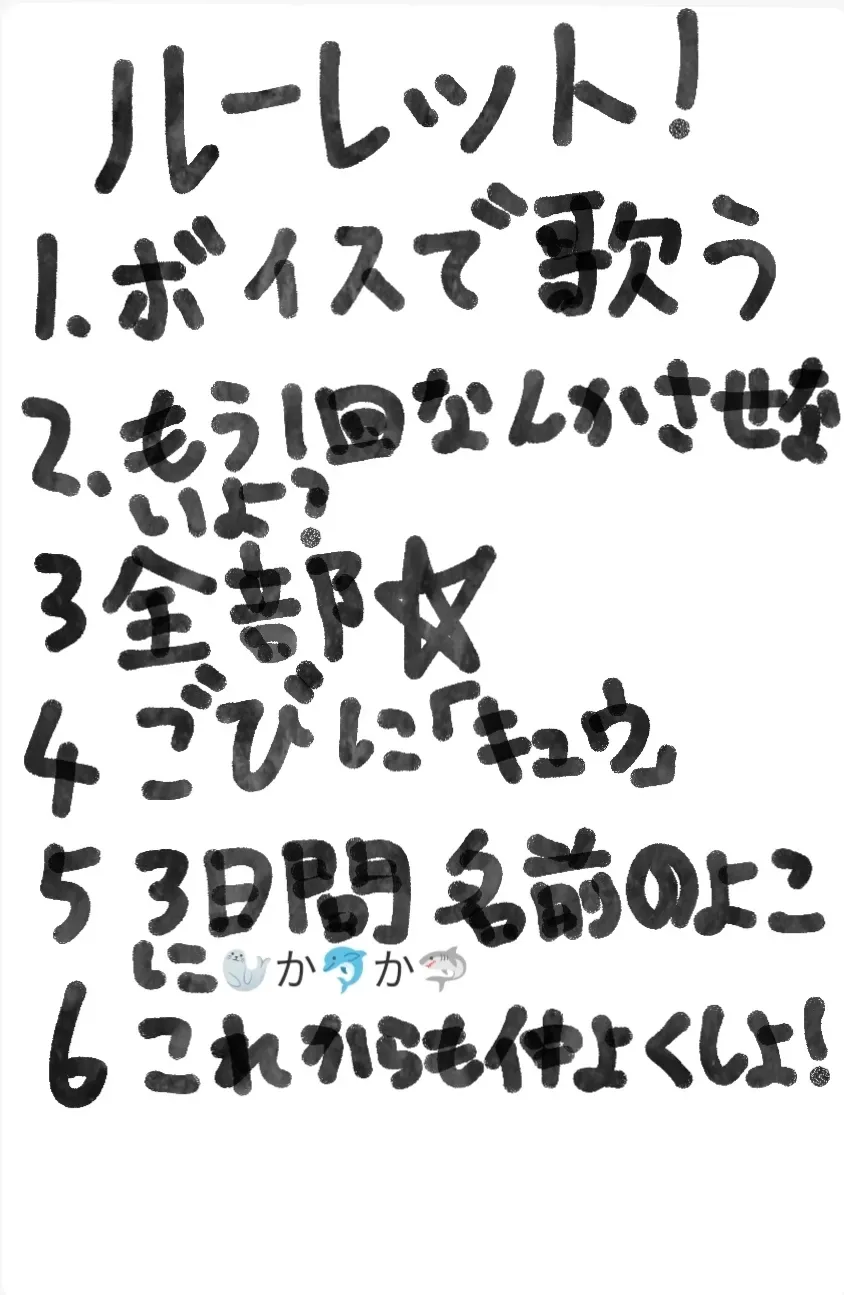 ルーレット!
1.ボイスで歌う
2.もう1回なんかさせな
いよ?
3 全部☆
4 ごびに「キュウ」
5 3日間 名前のよこ
に🦭か🐬か🦈
6 これからも仲よくしよ!